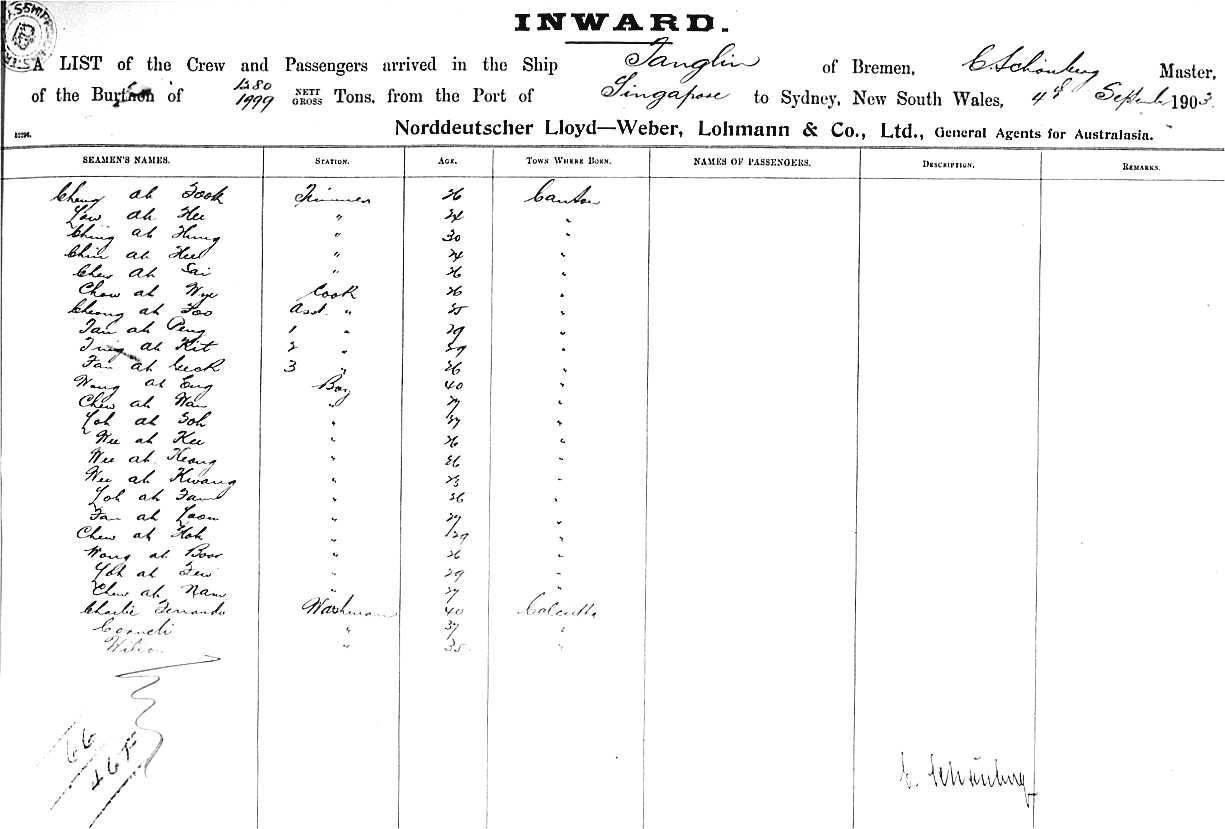 INWARD.
A LIST of the Crew and Passengers arrived in the Ship Tanglin of Bremen, C. Schönberg Master,
of the Burthen of 1380 1999 NETT GROSS Tons, from the Port of Singapore to Sydney, New South Wales, 4th September 1903.
Norddeutscher Lloyd—Weber, Lohmann & Co., Ltd., General Agents for Australasia.
SEAMEN'S NAMES. STATION. AGE. TOWN WHERE BORN. NAMES OF PASSENGERS. DESCRIPTION. REMARKS.
Cheng ah Fook Trimmer 26 Canton
Low ah Hee " 24 "
Ching ah Hung " 30 "
Chin ah Hee " 24 "
Chew ah Sai " 26 "
Chow ah Wye Cook 26 "
Cheong ah Foo Asst. " 25 "
Tan ah Peng 1 " 29 "
ah Kit 2 " 29 "
Fan ah 3 " 26 "
Wong ah Eng Boy 40 "
Chew ah Wan " 27 "
Loh ah Soh " 37 "
Wee ah Kee " 26 "
Wee ah Keong " 26 "
Wee ah Kwang " 23 "
Loh ah Fam " 26 "
Fan ah Loon " 27 "
Chew ah Hok " 29 "
Wong ah Boon " 26 "
Loh ah " 29 "
Chew ah Nam " 27 "
Charlie Fernando Washman 40 Calcutta
" 37 "
Wilson " 35 "
66
C. Schönberg